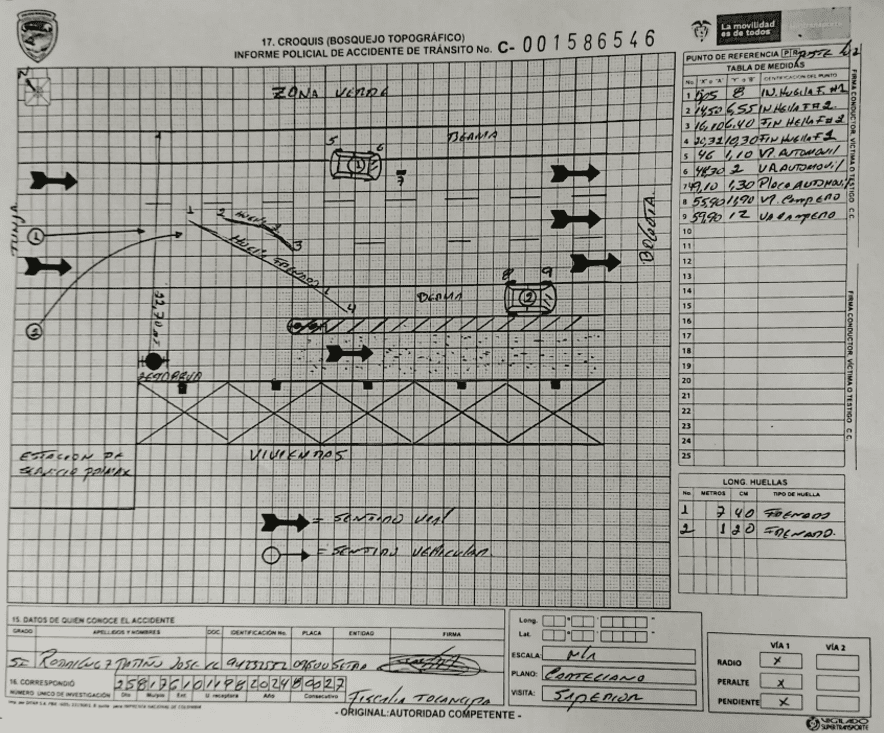 La movilidad
es de todos
17. CROQUIS (BOSQUEJO TOPOGRÁFICO)
INFORME POLICIAL DE ACCIDENTE DE TRÁNSITO No. C- 001586546
PUNTO DE REFERENCIA PR
TABLA DE MEDIDAS
No. "X" o "A" "Y" o "B" IDENTIFICACIÓN DEL PUNTO
1 8 IN. Huella F. #1
2 14,50 6,55 IN Huella F #2.
3 16,10 6,40 FIN Huella F #2
4 20,32 10,30 FIN Huella F 1
5 46 1,10 VP. AUTOMOVIL
6 48,30 2 VA AUTOMOVIL
7 49,10 1,30 Placa AUTOMOVIL
8 55,90 11,90 VP. CAMPERO
9 59,90 12 VA CAMPERO
10
11
12
13
14
15
16
17
18
19
20
21
22
23
24
25
FIRMA CONDUCTOR, VÍCTIMA O TESTIGO C.C.
FIRMA CONDUCTOR, VÍCTIMA O TESTIGO C.C.
ZONA VERDE
BERMA
5 6
1
7
TUNJA
BOGOTA
1
2 HUELLA 2
3
HUELLA FRENADO 1
4
1
2
22,70 mt
BERMA
8 9
2
ESTACION DE
SERVICIO PRIMAX
VIVIENDAS
= SENTIDO VIAL
= SENTIDO VEHICULAR
LONG. HUELLAS
No. METROS CM TIPO DE HUELLA
1 7 40 FRENADO
2 1 20 FRENADO.
15. DATOS DE QUIEN CONOCE EL ACCIDENTE
GRADO APELLIDOS Y NOMBRES DOC. IDENTIFICACIÓN No. PLACA ENTIDAD FIRMA
SI RODRIGUEZ PATIÑO JOSE
16. CORRESPONDIÓ 258176101198202480027
NÚMERO ÚNICO DE INVESTIGACIÓN Dto Municipio Ent. U. receptora Año Consecutivo
FISCALIA TOCANCIPA
- ORIGINAL: AUTORIDAD COMPETENTE -
Long.
Lat.
ESCALA: N/A
PLANO: CARTESIANO
VISITA: SUPERIOR
VÍA 1 VÍA 2
RADIO X
PERALTE X
PENDIENTE X
VIGILADO
SUPERTRANSPORTE